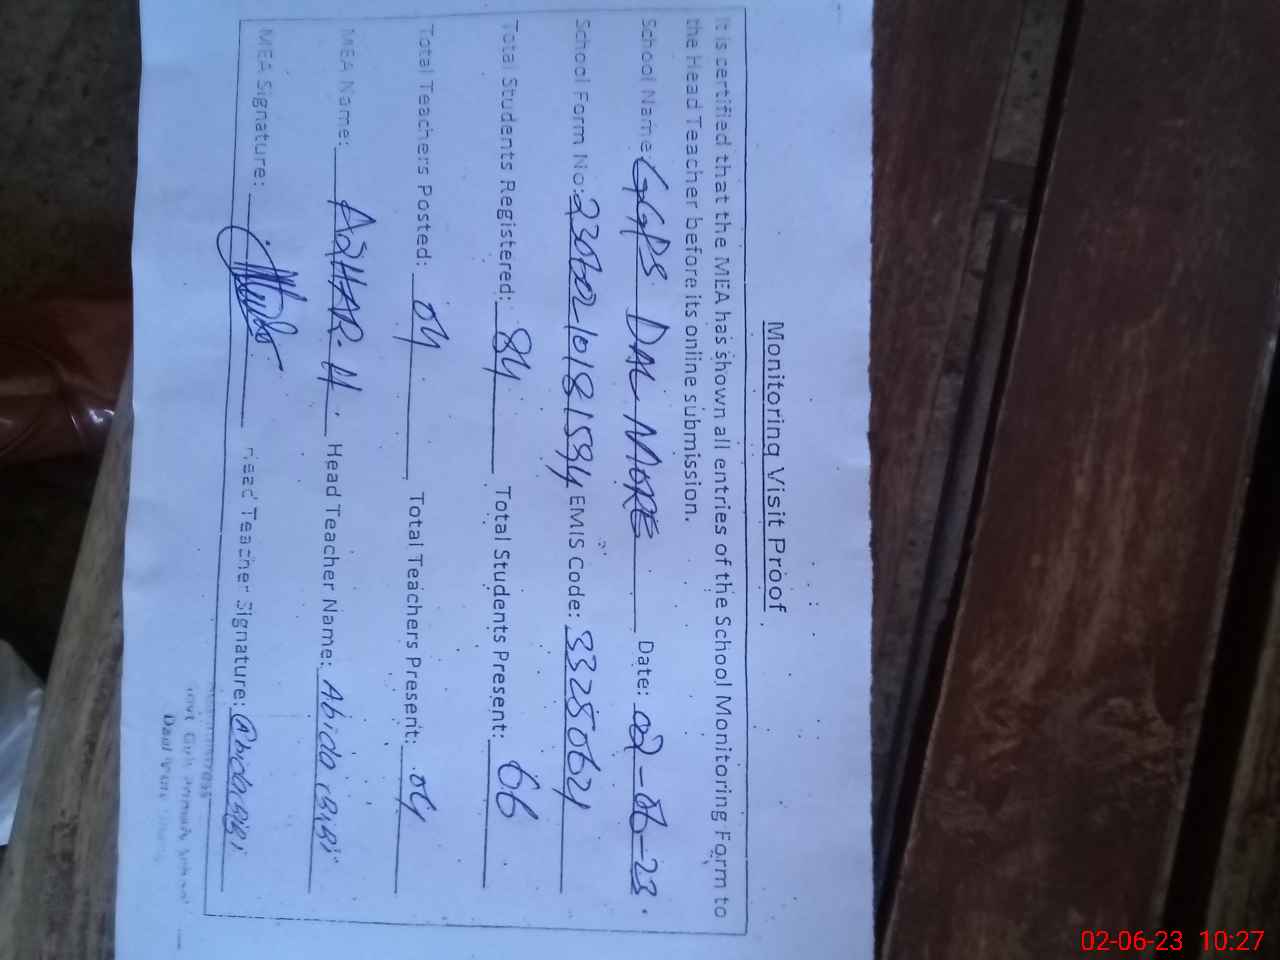 Monitoring Visit Proof
It is certified that the MEA has shown all entries of the School Monitoring Form to
the Head Teacher before its online submission.
School Name: GGPS DAL MORE Date: 02-06-23.
School Form No: 2300210181594 EMIS Code: 33250621
Total Students Registered: 84 Total Students Present: 66
Total Teachers Posted: 04 Total Teachers Present: 04
MEA Name: AZHAR. H. Head Teacher Name: Abida BiBi
MEA Signature: Head Teacher Signature: @bida BiBi
02-06-23 10:27